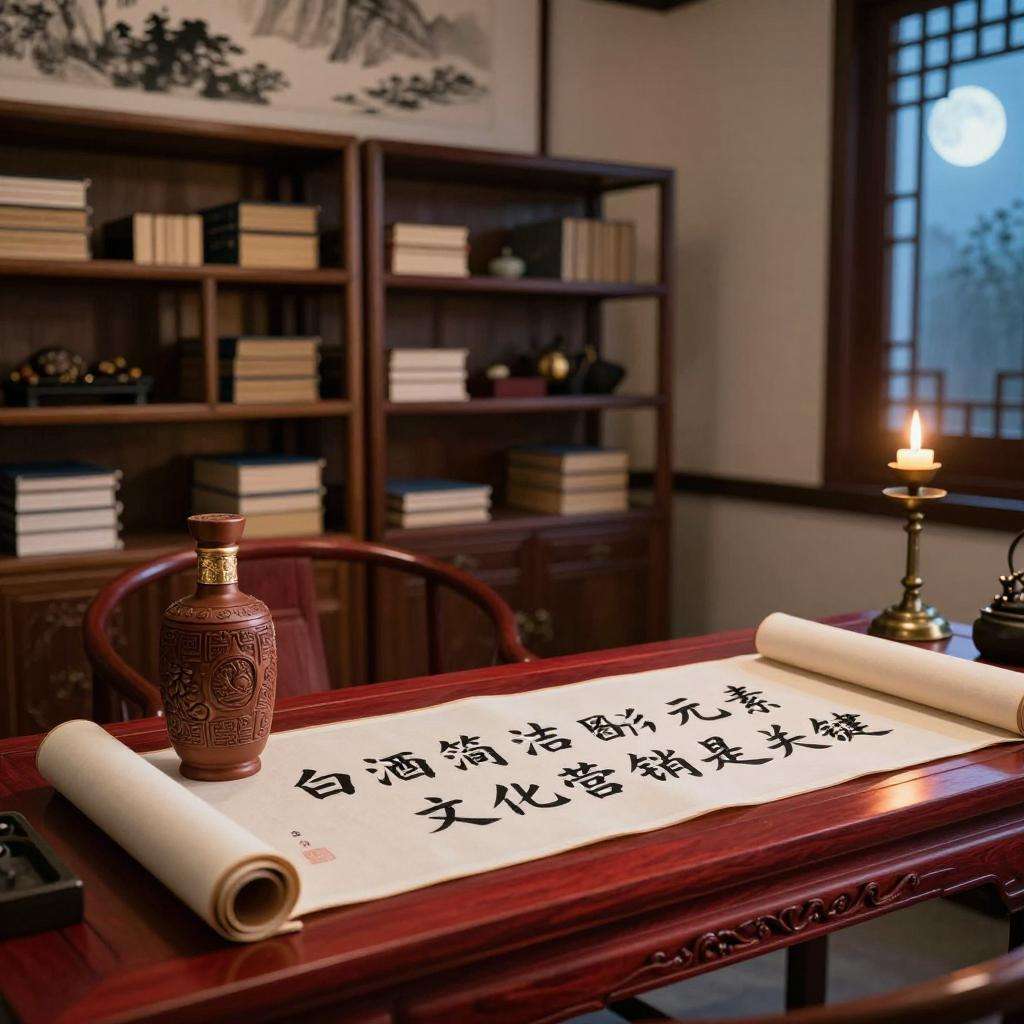 白酒简洁元素
文化营销是关键